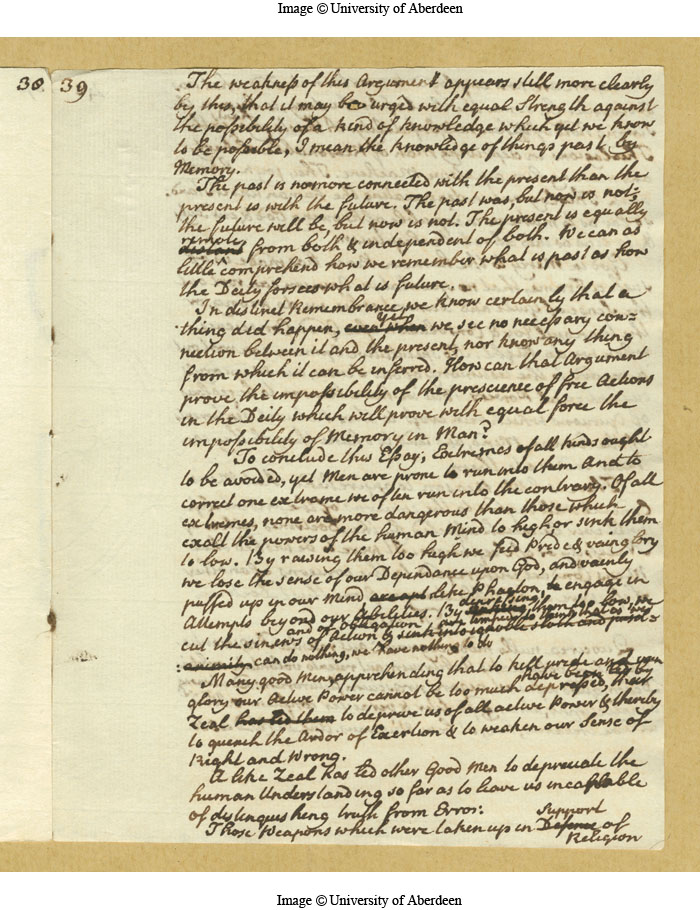 Image © University of Aberdeen
38 39
The weakness of this Argument appears still more clearly
by this, that it may be urged with equal Strength against
the possibility of a kind of knowledge which yet we know
to be possible, I mean the knowledge of things past by
Memory.
The past is no more connected with the present than the
present is with the future. The past was, but now is not;
the future will be, but now is not. The present is equally
remote
distant from both & independent of both. We can as
little comprehend how we remember what is past as how
the Deity forsees what is future.
In distinct Remembrance, we know certainly that a
yet
thing did happen, even when we see no necessary con=
nection between it and the present, nor know any thing
from which it can be inferred. How can that Argument
prove the impossibility of the prescience of free Actions
in the Deity which will prove with equal force the
impossibility of Memory in Man?
To conclude this Essay, Extremes of all kinds ought
to be avoided, yet Men are prone to run into them And to
correct one extreme we often run into the contrary. Of all
extremes, none are more dangerous than those which
exalt the powers of the human Mind to high or sink them
to low. By raising them too high we feed Pride & vain glory
we lose the sense of our Dependance upon God, and vainly
puffed up in our Mind like Phaeton, engage in
depressing
Attempts beyond our Abilities. By them to low, we
and of obligation are tempted to think that as we
cut the sinews of Action & sink into ignoble sloth and
can do nothing, we have nothing to do
Many good Men, apprehending that to kill pride and vain
have been led by
glory our Active Power cannot be too much depressed, their
Zeal has led them to deprive us of all active Power & thereby
to quench the Ardor of Exertion & to weaken our Sense of
Right and Wrong.
A like Zeal has led other Good Men to depreciate the
human Understanding so far as to leave us incapable
of distinguishing truth from Error:
Support
Those Weapons which were taken up in Defence of
Religion
Image © University of Aberdeen